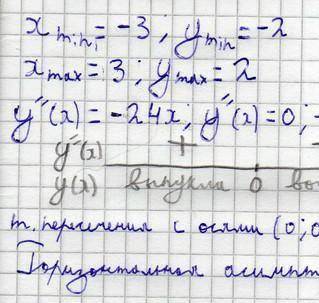 x min = -3; y min = -2
x max = 3; y max = 2
y''(x) = -24x; y''(x) = 0;
y''(x) +
y(x) выпукла 0 во
т. пересечения с осями (0; 0
Горизонтальная асимпт